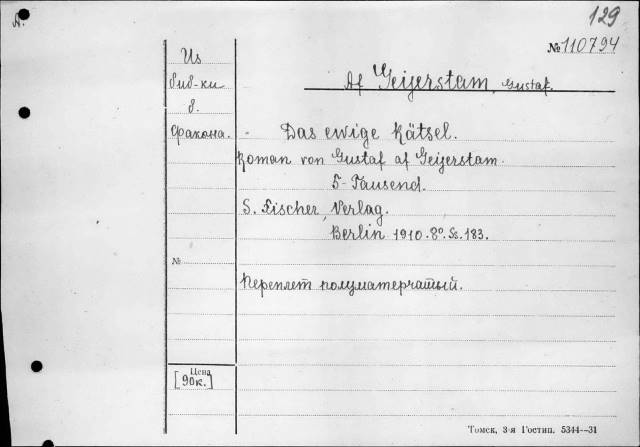 129
№ 110794
Af Geijerstam, Gustaf.
Из
биб-ки
б.
Фракона.
Das ewige Rätsel.
Roman von Gustaf af Geijerstam.
5-Tausend.
S. Fischer, Verlag.
Berlin 1910. 8º. Ss. 183.
№
Переплет полуматерчатый.
Цена
[90к.]
Томск, 3-я Гостип. 5344—31